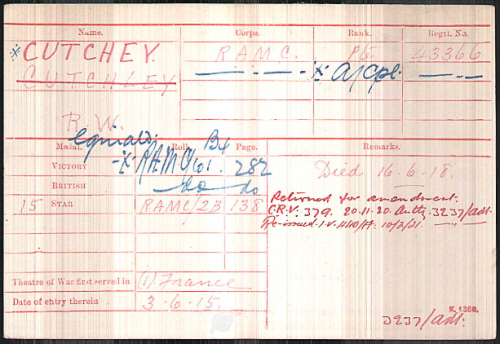 Name. Corps. Rank. Regtl. No.
* CUTCHEY. R.A.M.C. Pte 43366
CUTCHLEY — . — . — . — * A/Cpl. — . —
R. W.
Medal. Roll. Page. Remarks.
VICTORY * RAMC 101 B4 282 Died 16.6.18.
BRITISH do do
15 STAR RAMC/2B 138 Returned for amendment.
C.R.V. 379. 20.11.20. Auth. 3237/adt.
Re-issued 10/2/21.
Theatre of War first served in (1) France
Date of entry therein 3.6.15.
K. 1380.
3237/adt.